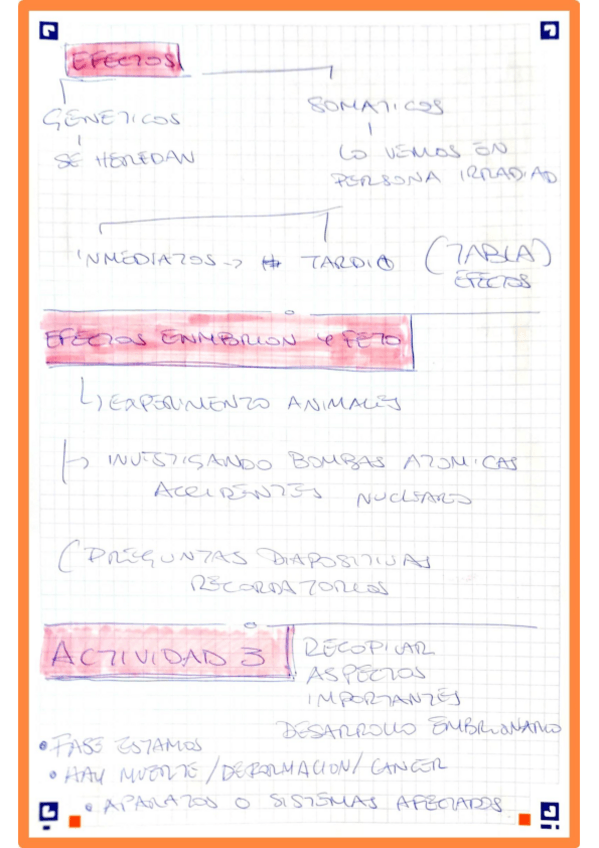 EFECTOS
GENETICOS
SOMATICOS
SE HEREDAN
LO VEMOS EN
PERSONA IRRADIAD
INMEDIATOS → TARDIO (TABLA)
EFECTOS
EFECTOS EN MBRION Y FETO
↳ EXPERIMENTO ANIMALES
↳ INVESTIGANDO BOMBAS ATOMICAS
ACCIDENTES NUCLEARES
( PREGUNTAS DIAPOSITIVAS
RECORDATORIOS
ACTIVIDAD 3
RECOPILAR
ASPECTOS
IMPORTANTES
DESARROLLO EMBRIONARIO
• FASE ESTAMOS
• HAY MUERTE / DEFORMACION / CANCER
• APARATOS O SISTEMAS AFECTADOS